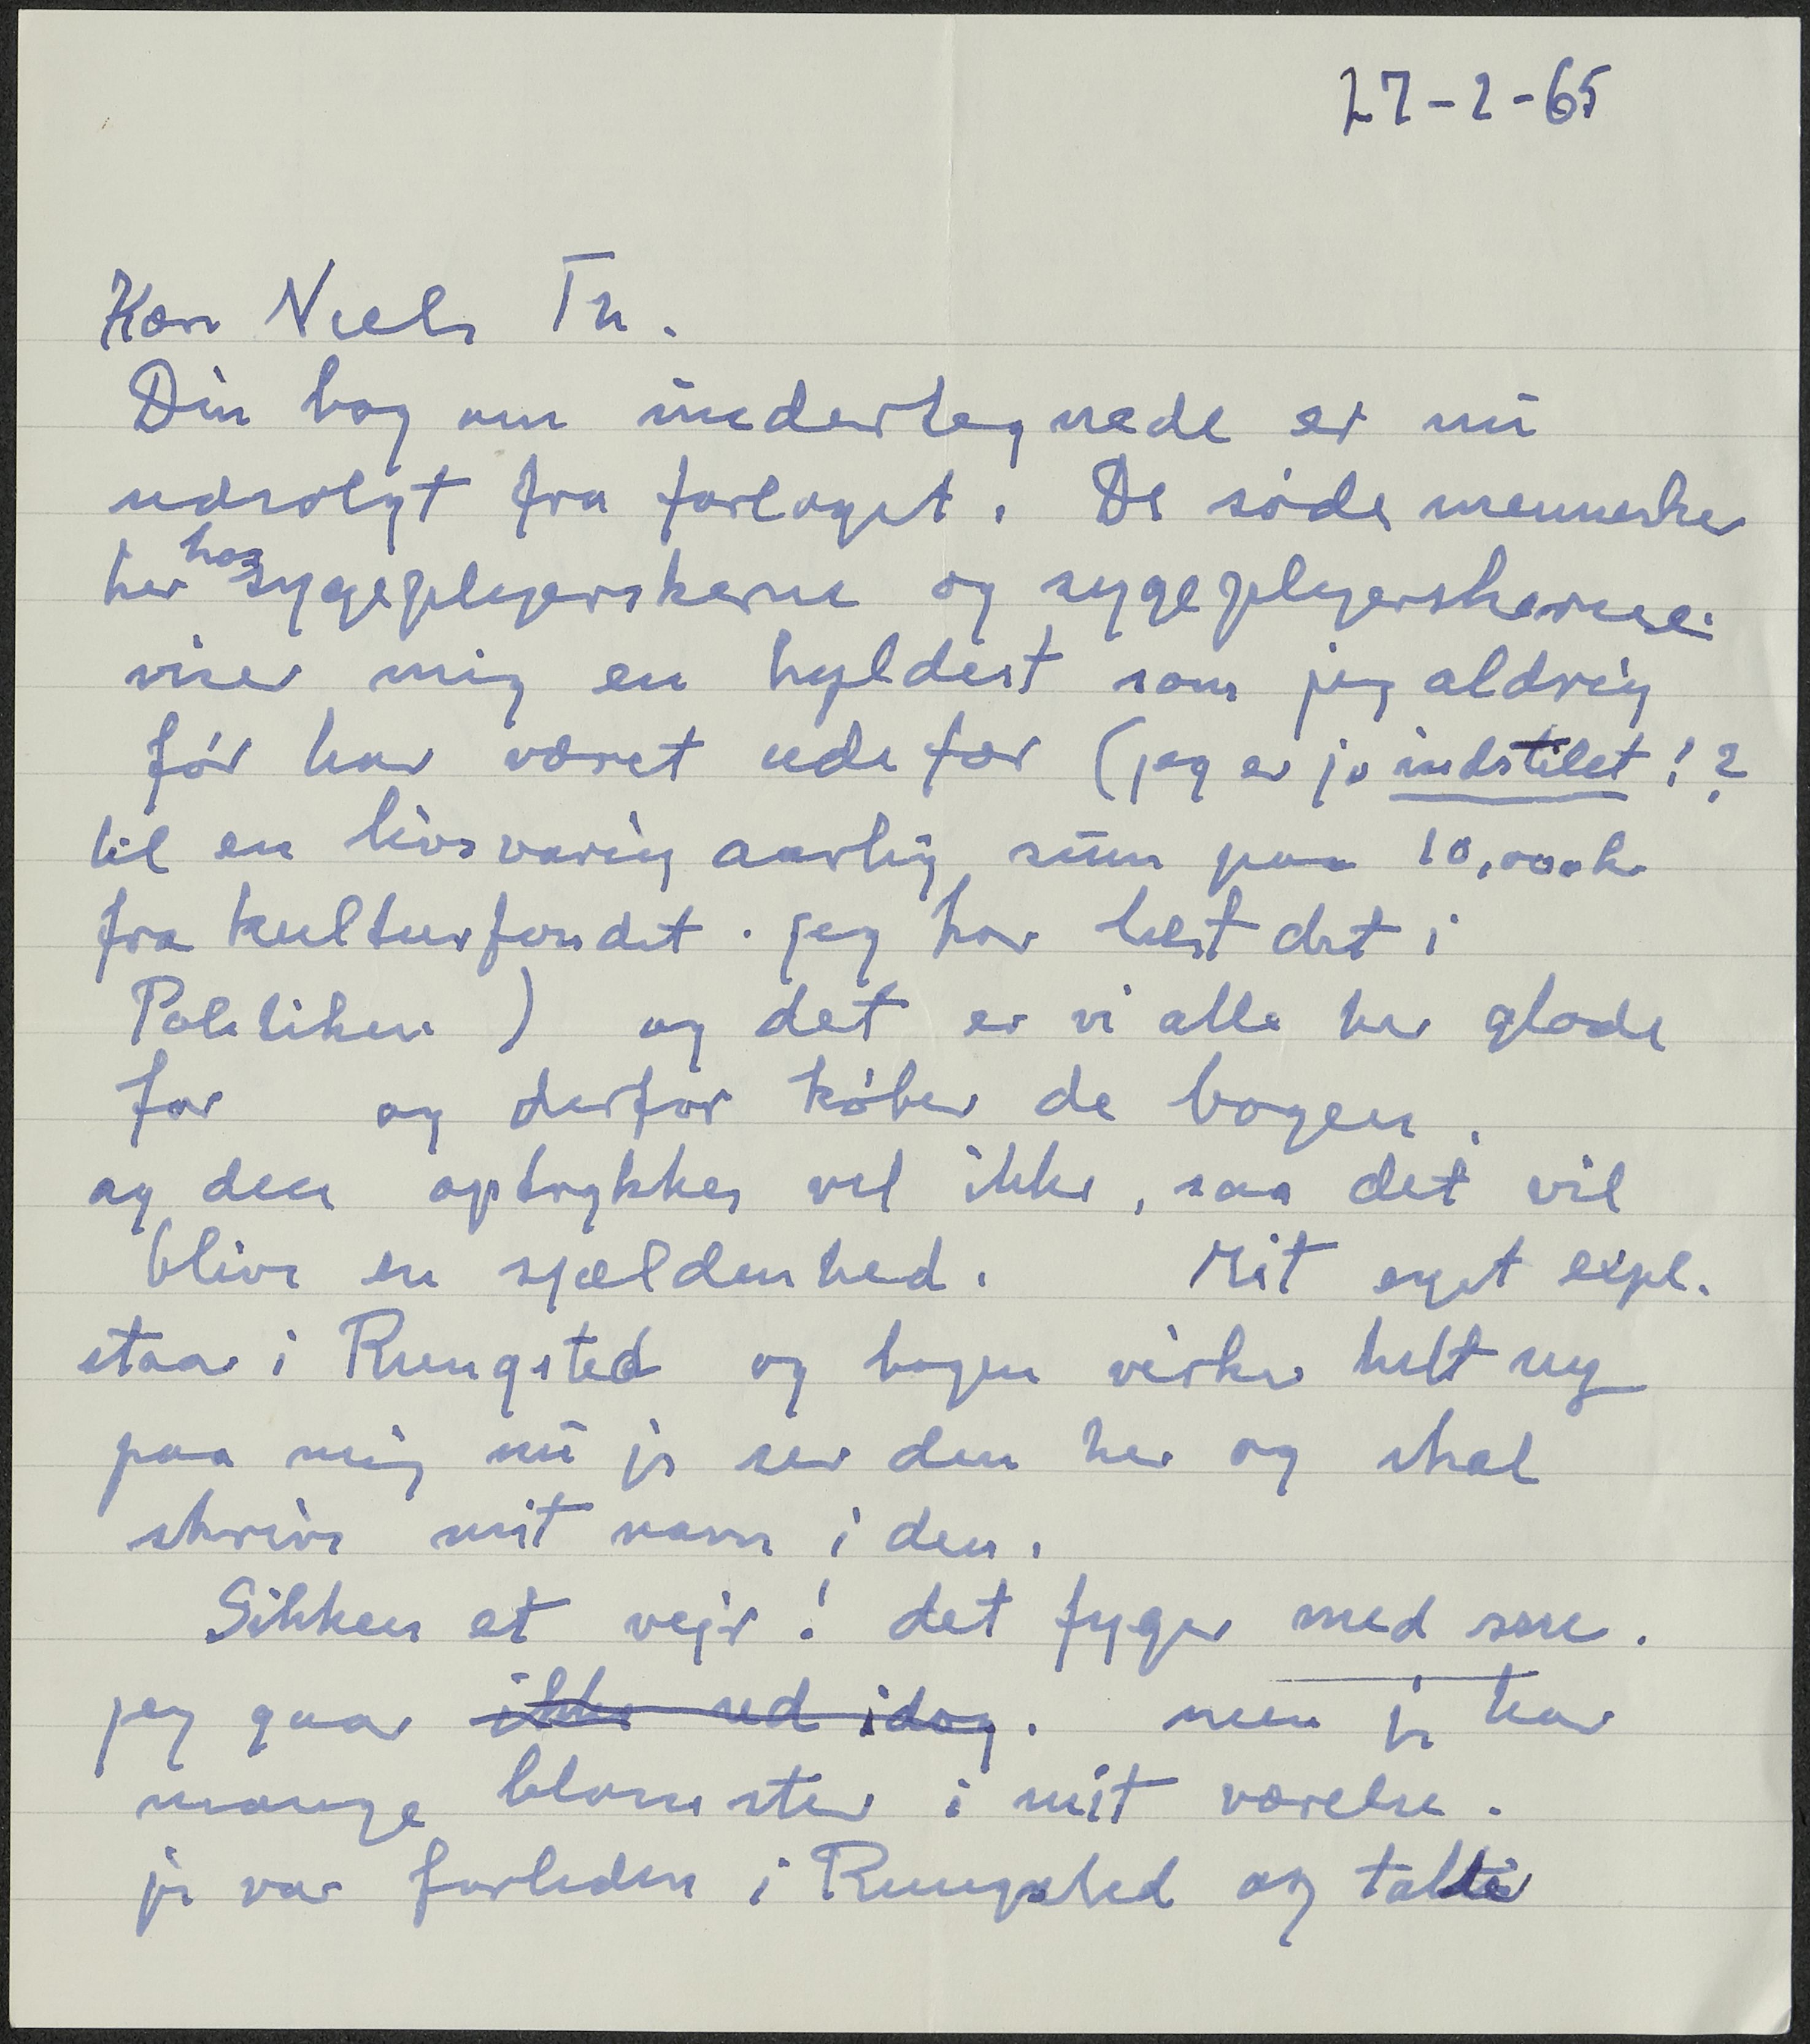 27-2-65
Kære Niels Th.
Din bog om undertegnede er nu
udsolgt fra forlaget. De søde mennesker
her hos sygeplejerskerne og sygeplejerskerne
viser mig en hyldest som jeg aldrig
før har været ude for (jeg er jo indstilet !?
til en livsvarig aarlig sum paa 10,000 kr
fra kulturfondet. jeg har læst det i
Politiken) og det er vi alle her glade
for og derfor køber de bogen.
og den optrykkes vel ikke, saa det vil
blive en sjældenhed. Mit eget expl.
staar i Rungsted og bogen virker helt ny
paa mig nu jeg ser den her og skal
skrive mit navn i den.
Sikken et vejr! det fyger med sne.
jeg gaar ikke ud idag. men jeg har
mange blomster i mit værelse.
jeg var forleden i Rungsted og talte